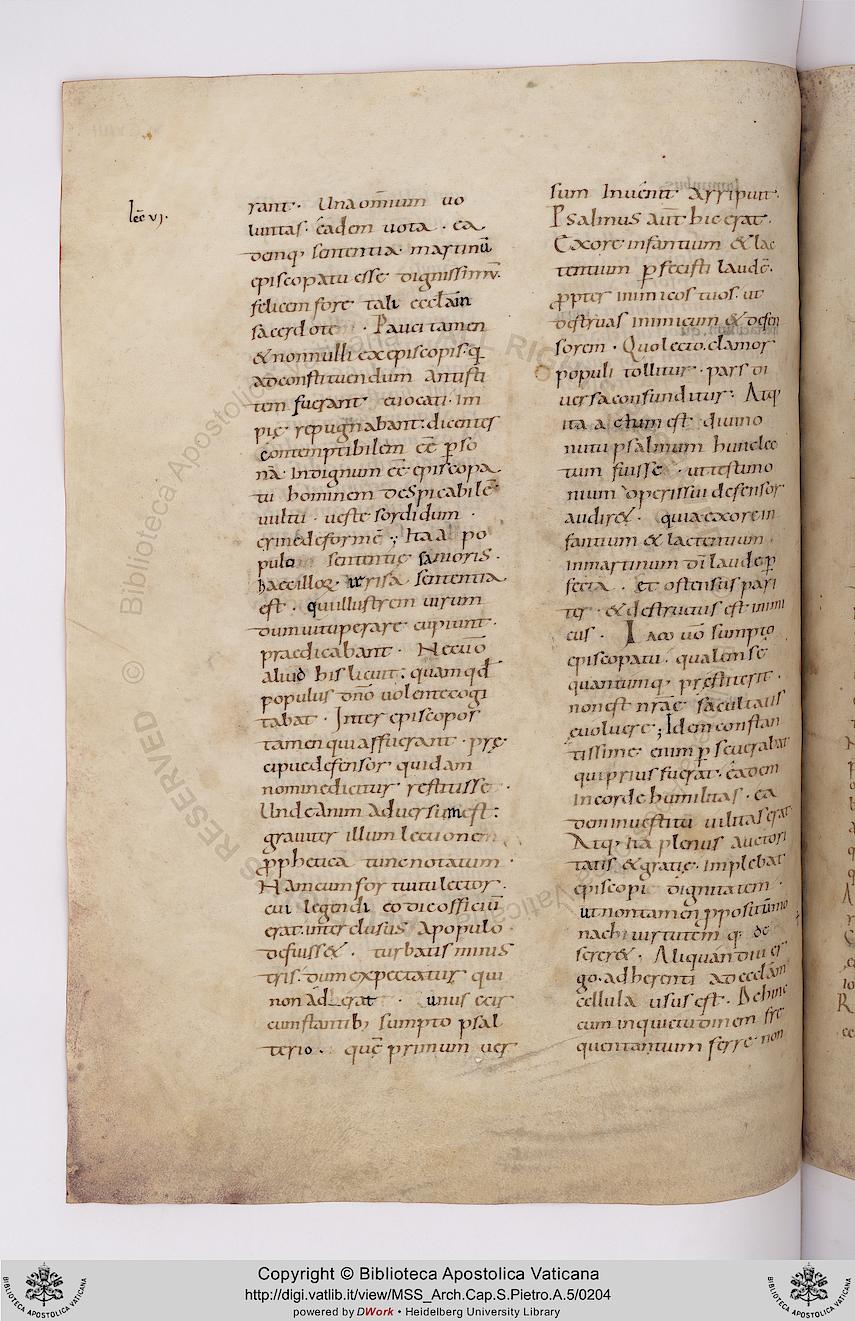 lec̄ vj·
rant· Una om̄nium uo
luntas· eadem uota· ea
demq; sententia· martinū
episcopatu esse dignissimū·
felicem fore tali ecclam̄
sacerdote· Pauci tamen
& nonnulli ex episcopis· q̄
ad constituendum antisti
tem fuerant euocati· im
pię repugnabant: dicentes
contemptibilem eē pso
nā· Indignum eē episcopa
tu hominem despicabilē
uultu· ueste sordidum·
crine deformē; Ita a po
pulo sententię sanioris·
haec illoꝝ irrisa sententia
est· qui illustrem uirum
dum uituperare cupiunt·
praedicabant· Nec uō
aliud his licuit: quam qđ
populus dn̄o uolente cogi
tabat· Inter episcopos
tamen qui affuerant· prę
cipue defensor quidam
nomine dicitur restitisse·
Unde animaduersum est:
grauiter illum lectione
pphetica tunc notatum·
Nam cum fortuitu lector·
cui legendi eo die officiū
erat· interclusus a populo
defuiss&· turbatis minis
tris· dum expectatur qui
non aderat· unus e cir
cumstantib; sumpto psal
terio· quē primum uer
sum Inuenit· arripuit·
Psalmus aūt hic erat·
Ex ore infantium & lac
tentium pfecisti laudē·
ppter inimicos tuos· ut
destruas inimicum & defen
sorem· Quo lecto· clamor
populi tollitur· pars di
uersa confunditur· Atq;
ita actum est diuino
nutu psalmum hunc lec
tum fuisse· ut testimo
nium operis sui defensor
audir&· quia ex ore in
fantium & lactentium
in martinum dn̄i laude p
fecta· et ostensus pari
ter· & destructus est inimi
cus· Iam uō sumpto
episcopatu· qualem se
quantumq; pręstiterit·
non est nrāe facultatis
euoluere; Idem constan
tissime enim pseuerabat
qui prius fuerat· eadem
in corde humilitas· ea
dem in uestitu uilitas erat
Atq; ita plenus auctori
tatis & gratię· implebat
episcopi dignitatem·
ut non tamen ppositū mo
nachi uirtutem q; de
serer&· Aliquandiu er
go· adherenti ad ecclam̄
cellula usus est· Dehinc
cum inquietudinem fre
quentantium ferre non
Copyright © Biblioteca Apostolica Vaticana
http://digi.vatlib.it/view/MSS_Arch.Cap.S.Pietro.A.5/0204
powered by DWork • Heidelberg University Library